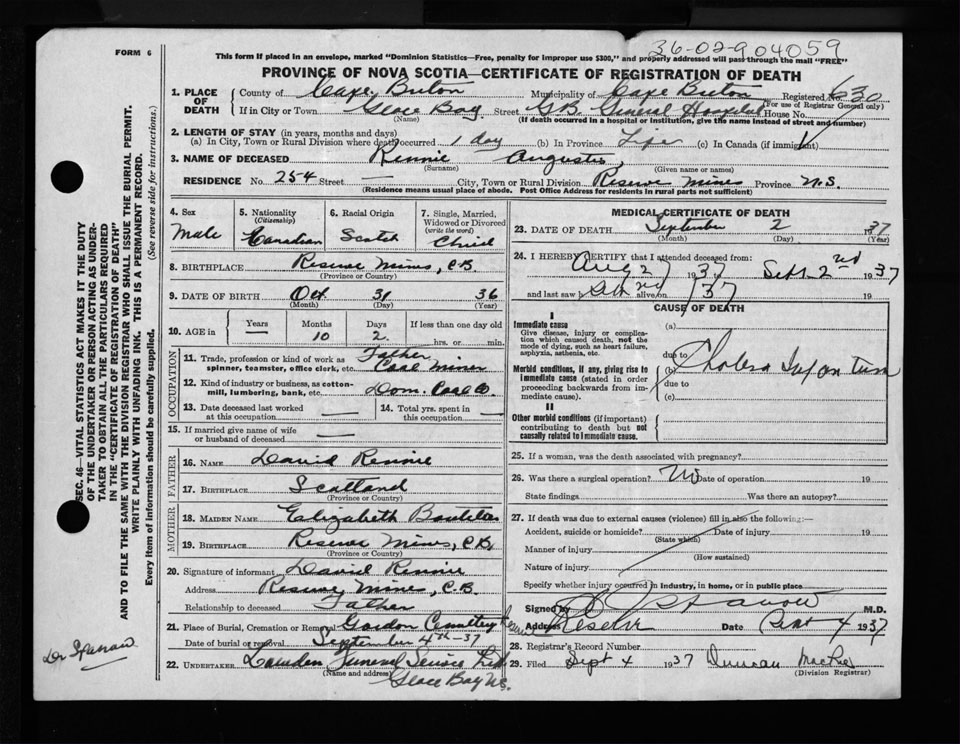 36-02-904059
FORM 6
This form if placed in an envelope, marked "Dominion Statistics—Free, penalty for improper use $300," and properly addressed will pass through the mail "FREE"
PROVINCE OF NOVA SCOTIA—CERTIFICATE OF REGISTRATION OF DEATH
1. PLACE OF DEATH County of Cape Breton Municipality of Cape Breton Registered No. 630
(For use of Registrar General only)
If in City or Town Glace Bay Street G.B. General Hospital House No.
(Name) (If death occurred in a hospital or institution, give the name instead of street and number)
2. LENGTH OF STAY (in years, months and days)
(a) In City, Town or Rural Division where death occurred 1 day (b) In Province Life (c) In Canada (if immigrant)
3. NAME OF DECEASED Rennie
(Surname) (Given name or names)
RESIDENCE No. 254 Street — City, Town or Rural Division Reserve Mines Province N.S.
(Residence means usual place of abode. Post Office Address for residents in rural parts not sufficient)
4. Sex Male
5. Nationality (Citizenship) Canadian
6. Racial Origin Scotch
7. Single, Married, Widowed or Divorced (write the word) Child
8. BIRTHPLACE Reserve Mines, C.B.
(Province or Country)
9. DATE OF BIRTH Oct 31 36
(Month) (Day) (Year)
10. AGE in Years — Months 10 Days 2 If less than one day old
hrs. or min.
OCCUPATION
11. Trade, profession or kind of work as spinner, teamster, office clerk, etc. Father Coal Miner
12. Kind of industry or business, as cotton-mill, lumbering, bank, etc. Dom. Coal Co
13. Date deceased last worked at this occupation —
14. Total yrs. spent in this occupation —
15. If married give name of wife or husband of deceased —
FATHER
16. NAME David Rennie
17. BIRTHPLACE Scotland
(Province or Country)
MOTHER
18. MAIDEN NAME Elizabeth
19. BIRTHPLACE Reserve Mines, C.B.
(Province or Country)
20. Signature of informant David Rennie
Address Reserve Mines, C.B.
Relationship to deceased Father
21. Place of Burial, Cremation or Removal Gordon Cemetery Reserve
Date of burial or removal September 4th-37
22. UNDERTAKER Funeral Service Ltd
(Name and address) Glace Bay N.S.
MEDICAL CERTIFICATE OF DEATH
23. DATE OF DEATH September 2 1937
(Month) (Day) (Year)
24. I HEREBY CERTIFY that I attended deceased from:
Aug 27 1937 Sept. 2nd 1937
and last saw h alive on 37 19
CAUSE OF DEATH
I
Immediate cause
Give disease, injury or complication which caused death, not the mode of dying, such as heart failure, asphyxia, asthenia, etc.
(a)
due to
Morbid conditions, if any, giving rise to immediate cause (stated in order proceeding backwards from immediate cause).
(b) Cholera Infantum
due to
(c)
II
Other morbid conditions (if important) contributing to death but not causally related to immediate cause.
25. If a woman, was the death associated with pregnancy?
26. Was there a surgical operation? No Date of operation 19
State findings Was there an autopsy?
27. If death was due to external causes (violence) fill in also the following:—
Accident, suicide or homicide? Date of injury 19
(State which)
Manner of injury
(How sustained)
Nature of injury
Specify whether injury occurred in industry, in home, or in public place
Signed by M.D.
Address Reserve Date Sept 4 1937
28. Registrar's Record Number
29. Filed Sept 4 1937 Duncan
(Division Registrar)
SEC. 46—VITAL STATISTICS ACT MAKES IT THE DUTY
OF THE UNDERTAKER OR PERSON ACTING AS UNDERTAKER
TO OBTAIN ALL THE PARTICULARS REQUIRED
IN THE "CERTIFICATE OF REGISTRATION OF DEATH"
AND TO FILE THE SAME WITH THE DIVISION REGISTRAR WHO SHALL ISSUE THE BURIAL PERMIT.
WRITE PLAINLY WITH UNFADING INK. THIS IS A PERMANENT RECORD.
Every item of information should be carefully supplied. (See reverse side for instructions.)